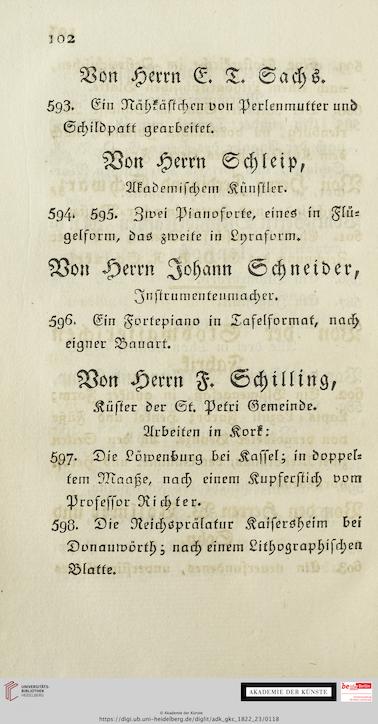 102
Von Herrn E. T. Sachs.
593. Ein Nähkästchen von Perlenmutter und
Schildpatt gearbeitet.
Von Herrn Schleip,
Akademischem Künstler.
594. 595. Zwei Pianoforte, eines in Flü-
gelform, das zweite in Lyraform.
Von Herrn Johann Schneider,
Instrumentenmacher.
596. Ein Fortepiano in Tafelformat, nach
eigner Bauart.
Von Herrn F. Schilling,
Küster der St. Petri Gemeinde.
Arbeiten in Kork:
597. Die Löwenburg bei Kassel; in doppel-
tem Maaße, nach einem Kupferstich vom
Professor Richter.
598. Die Reichsprälatur Kaisersheim bei
Donauwörth; nach einem Lithographischen
Blatte.
UNIVERSITÄTS-
BIBLIOTHEK
HEIDELBERG
AKADEMIE DER KÜNSTE
© Akademie der Künste
https://digi.ub.uni-heidelberg.de/diglit/adk_gkc_1822_23/0118